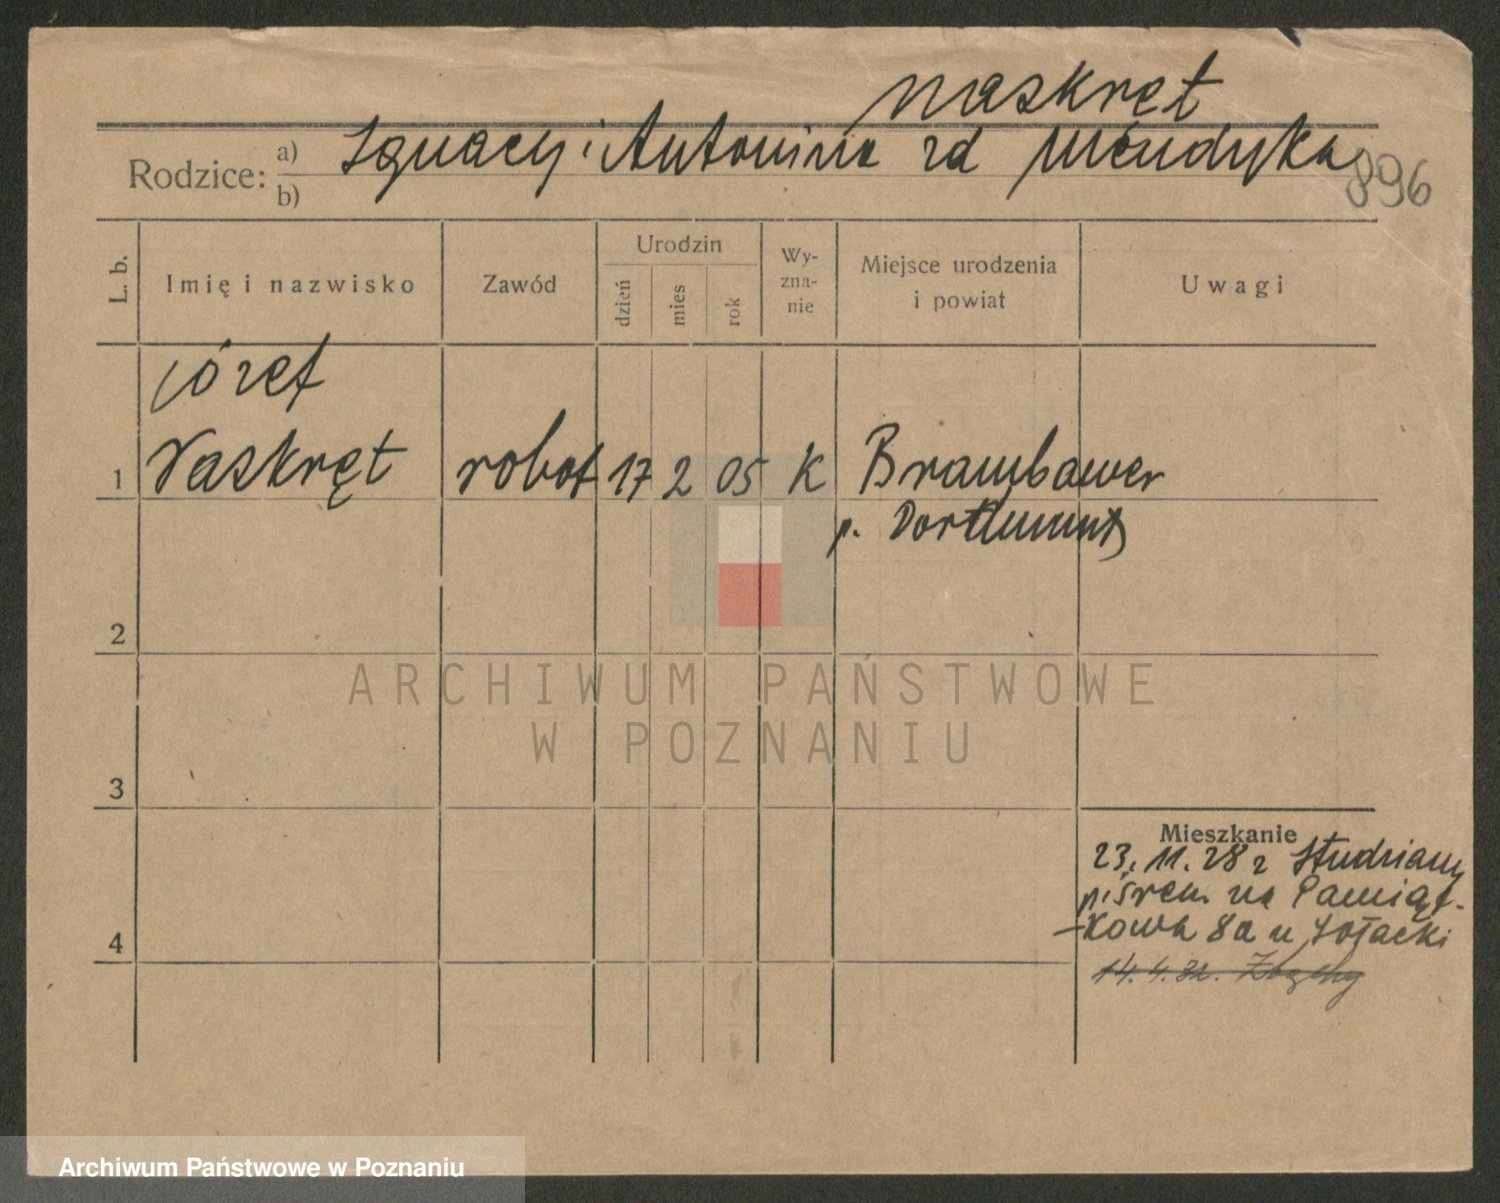 Naskręt
Rodzice: a) Ignacy i Antonina zd Mendyka
b)
896
L. b.
Imię i nazwisko
Zawód
Urodzin
dzień
mies
rok
Wy-
zna-
nie
Miejsce urodzenia
i powiat
Uwagi
Józef
1 Naskręt robot 17 2 05 K Brambawer
p. Dortmund
2
3
4
Mieszkanie
23.11.28 z Studziany
p. śrem na Pamiąt-
-kowa 8a u
14.4.32.
ARCHIWUM PAŃSTWOWE
W POZNANIU
Archiwum Państwowe w Poznaniu